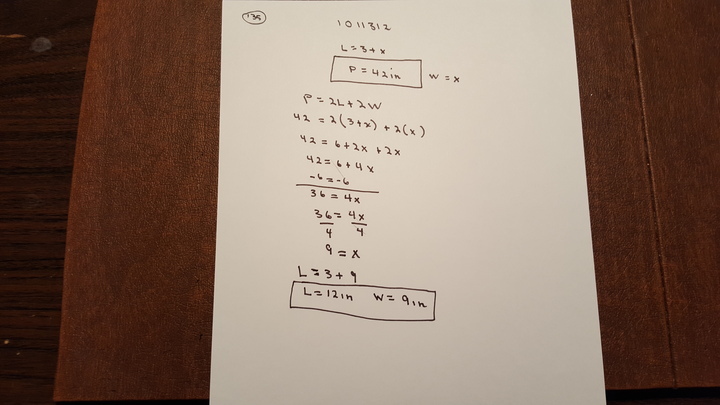 135
1011312
L = 3 + x
P = 42in W = x
P = 2L + 2W
42 = 2(3+x) + 2(x)
42 = 6 + 2x + 2x
42 = 6 + 4x
-6 = -6
36 = 4x
36 = 4x
4 4
9 = x
L = 3 + 9
L = 12in W = 9in